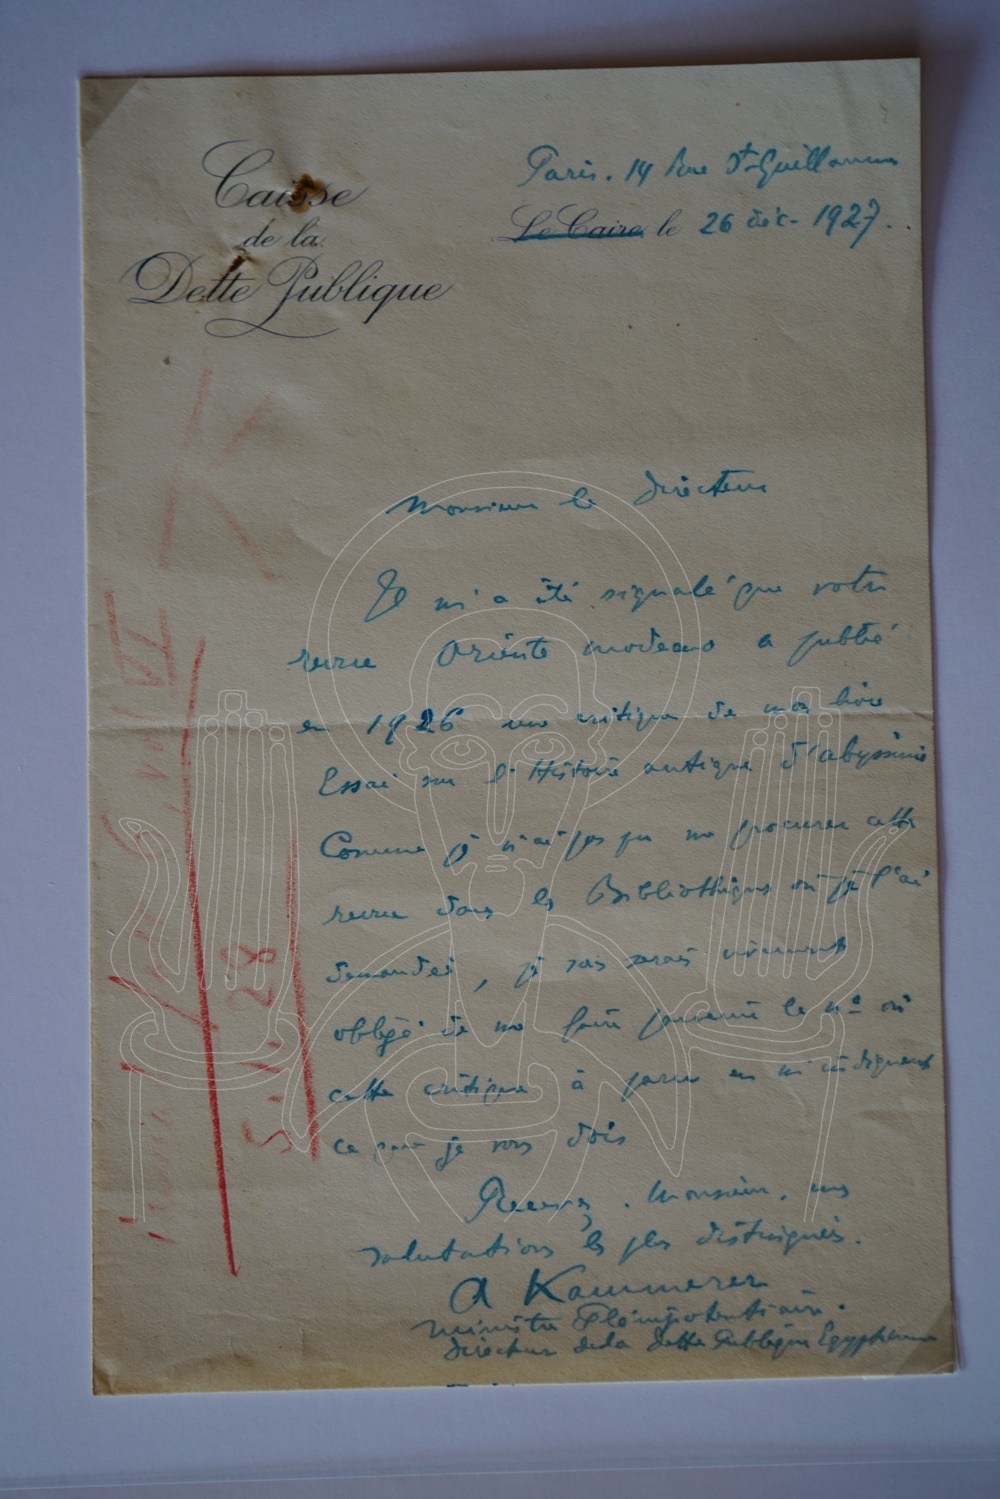 Caisse
de la
Dette Publique
Paris. 14 Rue St Guillaume
Le Caire le 26 déc- 1927.
Monsieur le Directeur
Il m'a été signalé que votre
revue Oriente moderno a publié
en 1926 une critique de mon livre
Essai sur l'Histoire antique d'abyssinie
Comme je n'ai pas pu me procurer cette
revue dans les Bibliothèques où je l'ai
demandée, je vous serais vivement
obligé de me faire parvenir le nº où
cette critique a paru en m'indiquant
ce que je vous dois
Recevez. Monsieur. mes
salutations les plus distinguées.
A Kammerer
Ministre Plénipotentiaire.
Directeur de la Dette Publique Egyptienne
28